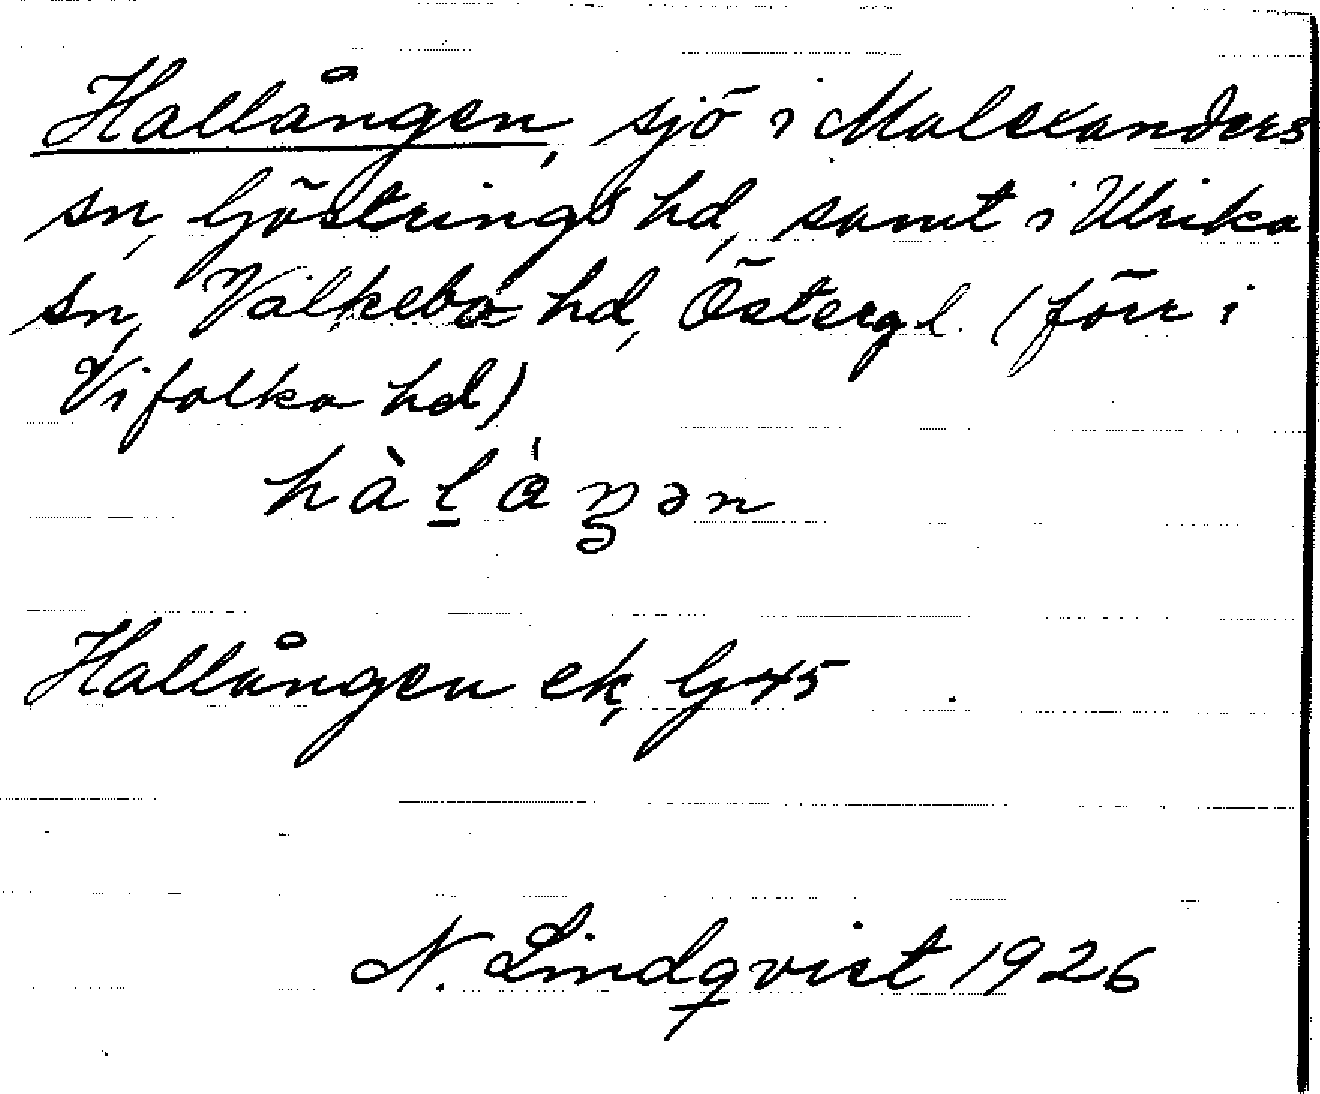 Hallången, sjö i Malexanders
sn, Göstrings hd, samt i Ulrika
sn, Valkebo hd, Östergl. (förr i
Vifolka hd)
hàḻáŋən
Hallången ek, G45
N. Lindqvist 1926